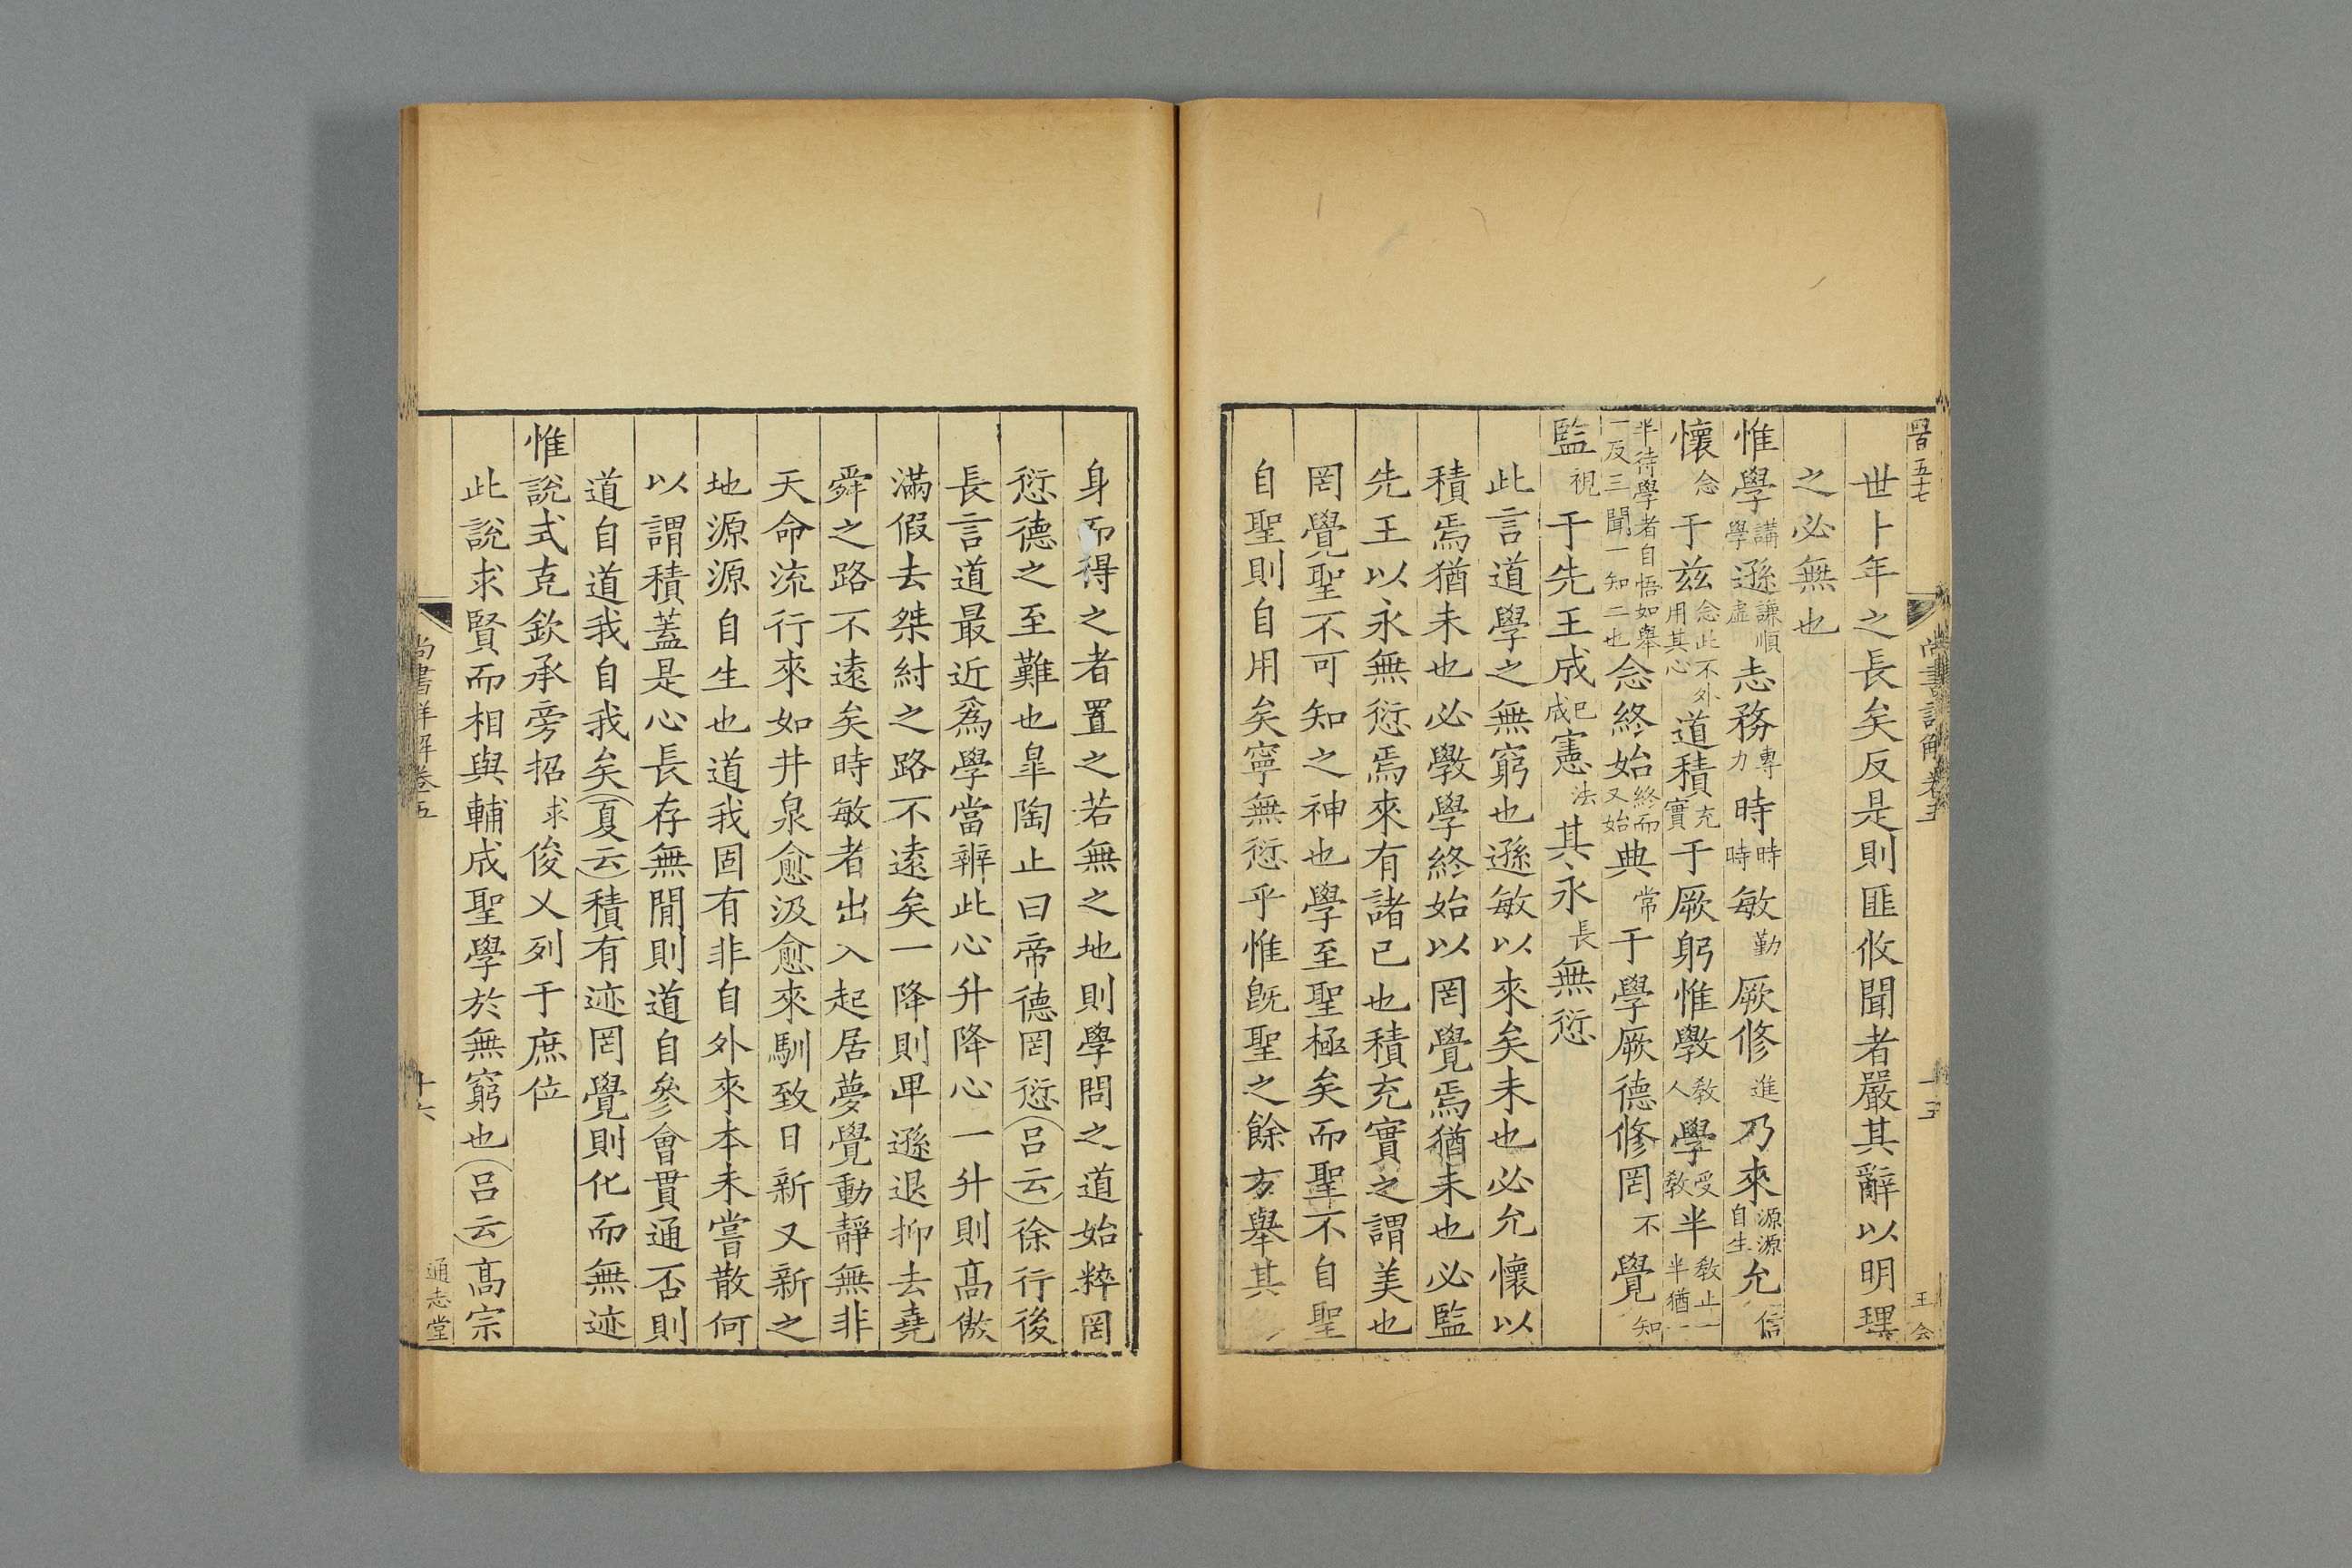 四百五十七
尚書詳解卷五
十五
王会
世卜年之長矣反是則匪攸聞者嚴其辭以明理
之必無也
惟學講學遜謙順虛志務專力時時時敏勤厥修進乃來源源自生允信
懷念于兹念此不外用其心道積充實于厥躬惟斆教人學受教半教止一半猶一
半待學者自悟如舉一反三聞一知二也念終始終而又始典常于學厥德修罔不覺知
監視于先王成已成憲法其永長無愆
此言道學之無窮也遜敏以來矣未也必允懷以
積焉猶未也必斆學終始以罔覺焉猶未也必監
先王以永無愆焉來有諸已也積充實之謂美也
罔覺聖不可知之神也學至聖極矣而聖不自聖
自聖則自用矣寧無愆乎惟旣聖之餘方舉其
身而得之者置之若無之地則學問之道始粹罔
愆德之至難也臯陶止曰帝德罔愆(呂云)徐行後
長言道最近爲學當辨此心升降心一升則高傲
滿假去桀紂之路不遠矣一降則甲遜退抑去堯
舜之路不遠矣時敏者出入起居夢覺動靜無非
天命流行來如井泉愈汲愈來馴致日新又新之
地源源自生也道我固有非自外來本未嘗散何
以謂積蓋是心長存無閒則道自參會貫通否則
道自道我自我矣(夏云)積有迹罔覺則化而無迹
惟說式克欽承旁招求俊乂列于庶位
此說求賢而相與輔成聖學於無窮也(呂云)高宗
尚書詳解卷五
十六
通志堂